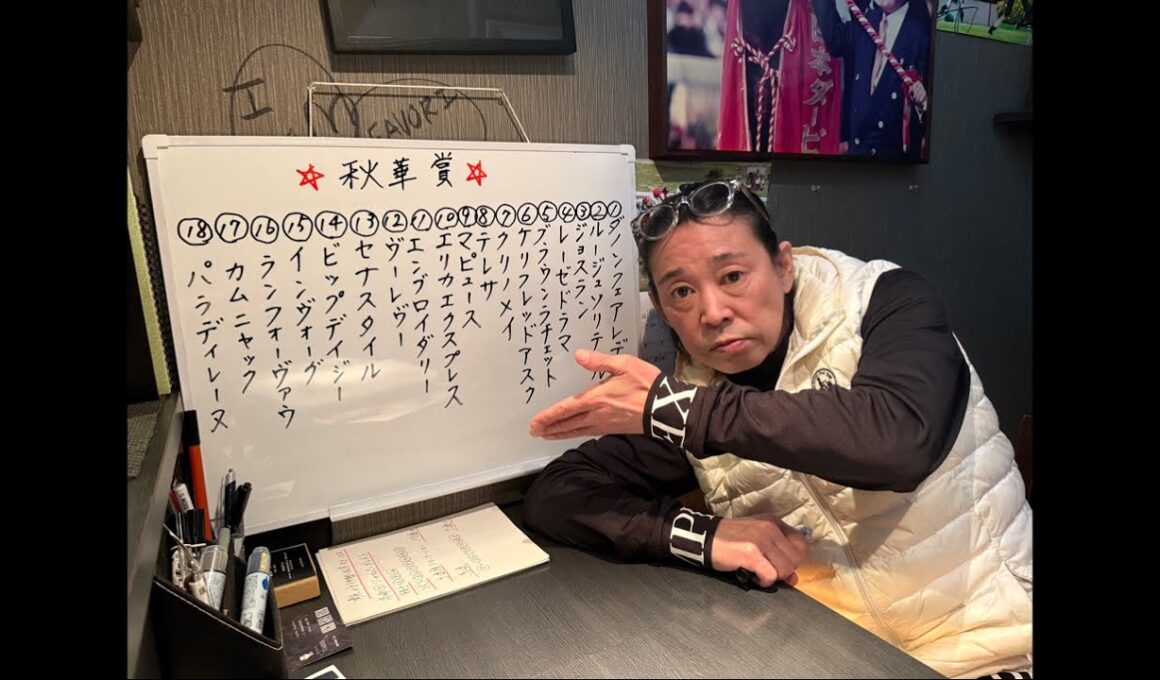 I
FAVORI
本ダービ
☆秋華賞☆
①ダノンフェアレデ
②ルージュソリテール
③ジョスラン
④レーゼドラマ
⑤ブラウンラチェット
⑥ケリフレッドアスク
⑦クリノメイ
⑧テレサ
⑨マピュース
⑩エリカエクスプレス
⑪エンブロイダリー
⑫ヴーレヴー
⑬セナスタイル
⑭ビップデイジー
⑮インヴォーグ
⑯ランフォーヴァウ
⑰カムニャック
⑱パラディレーヌ